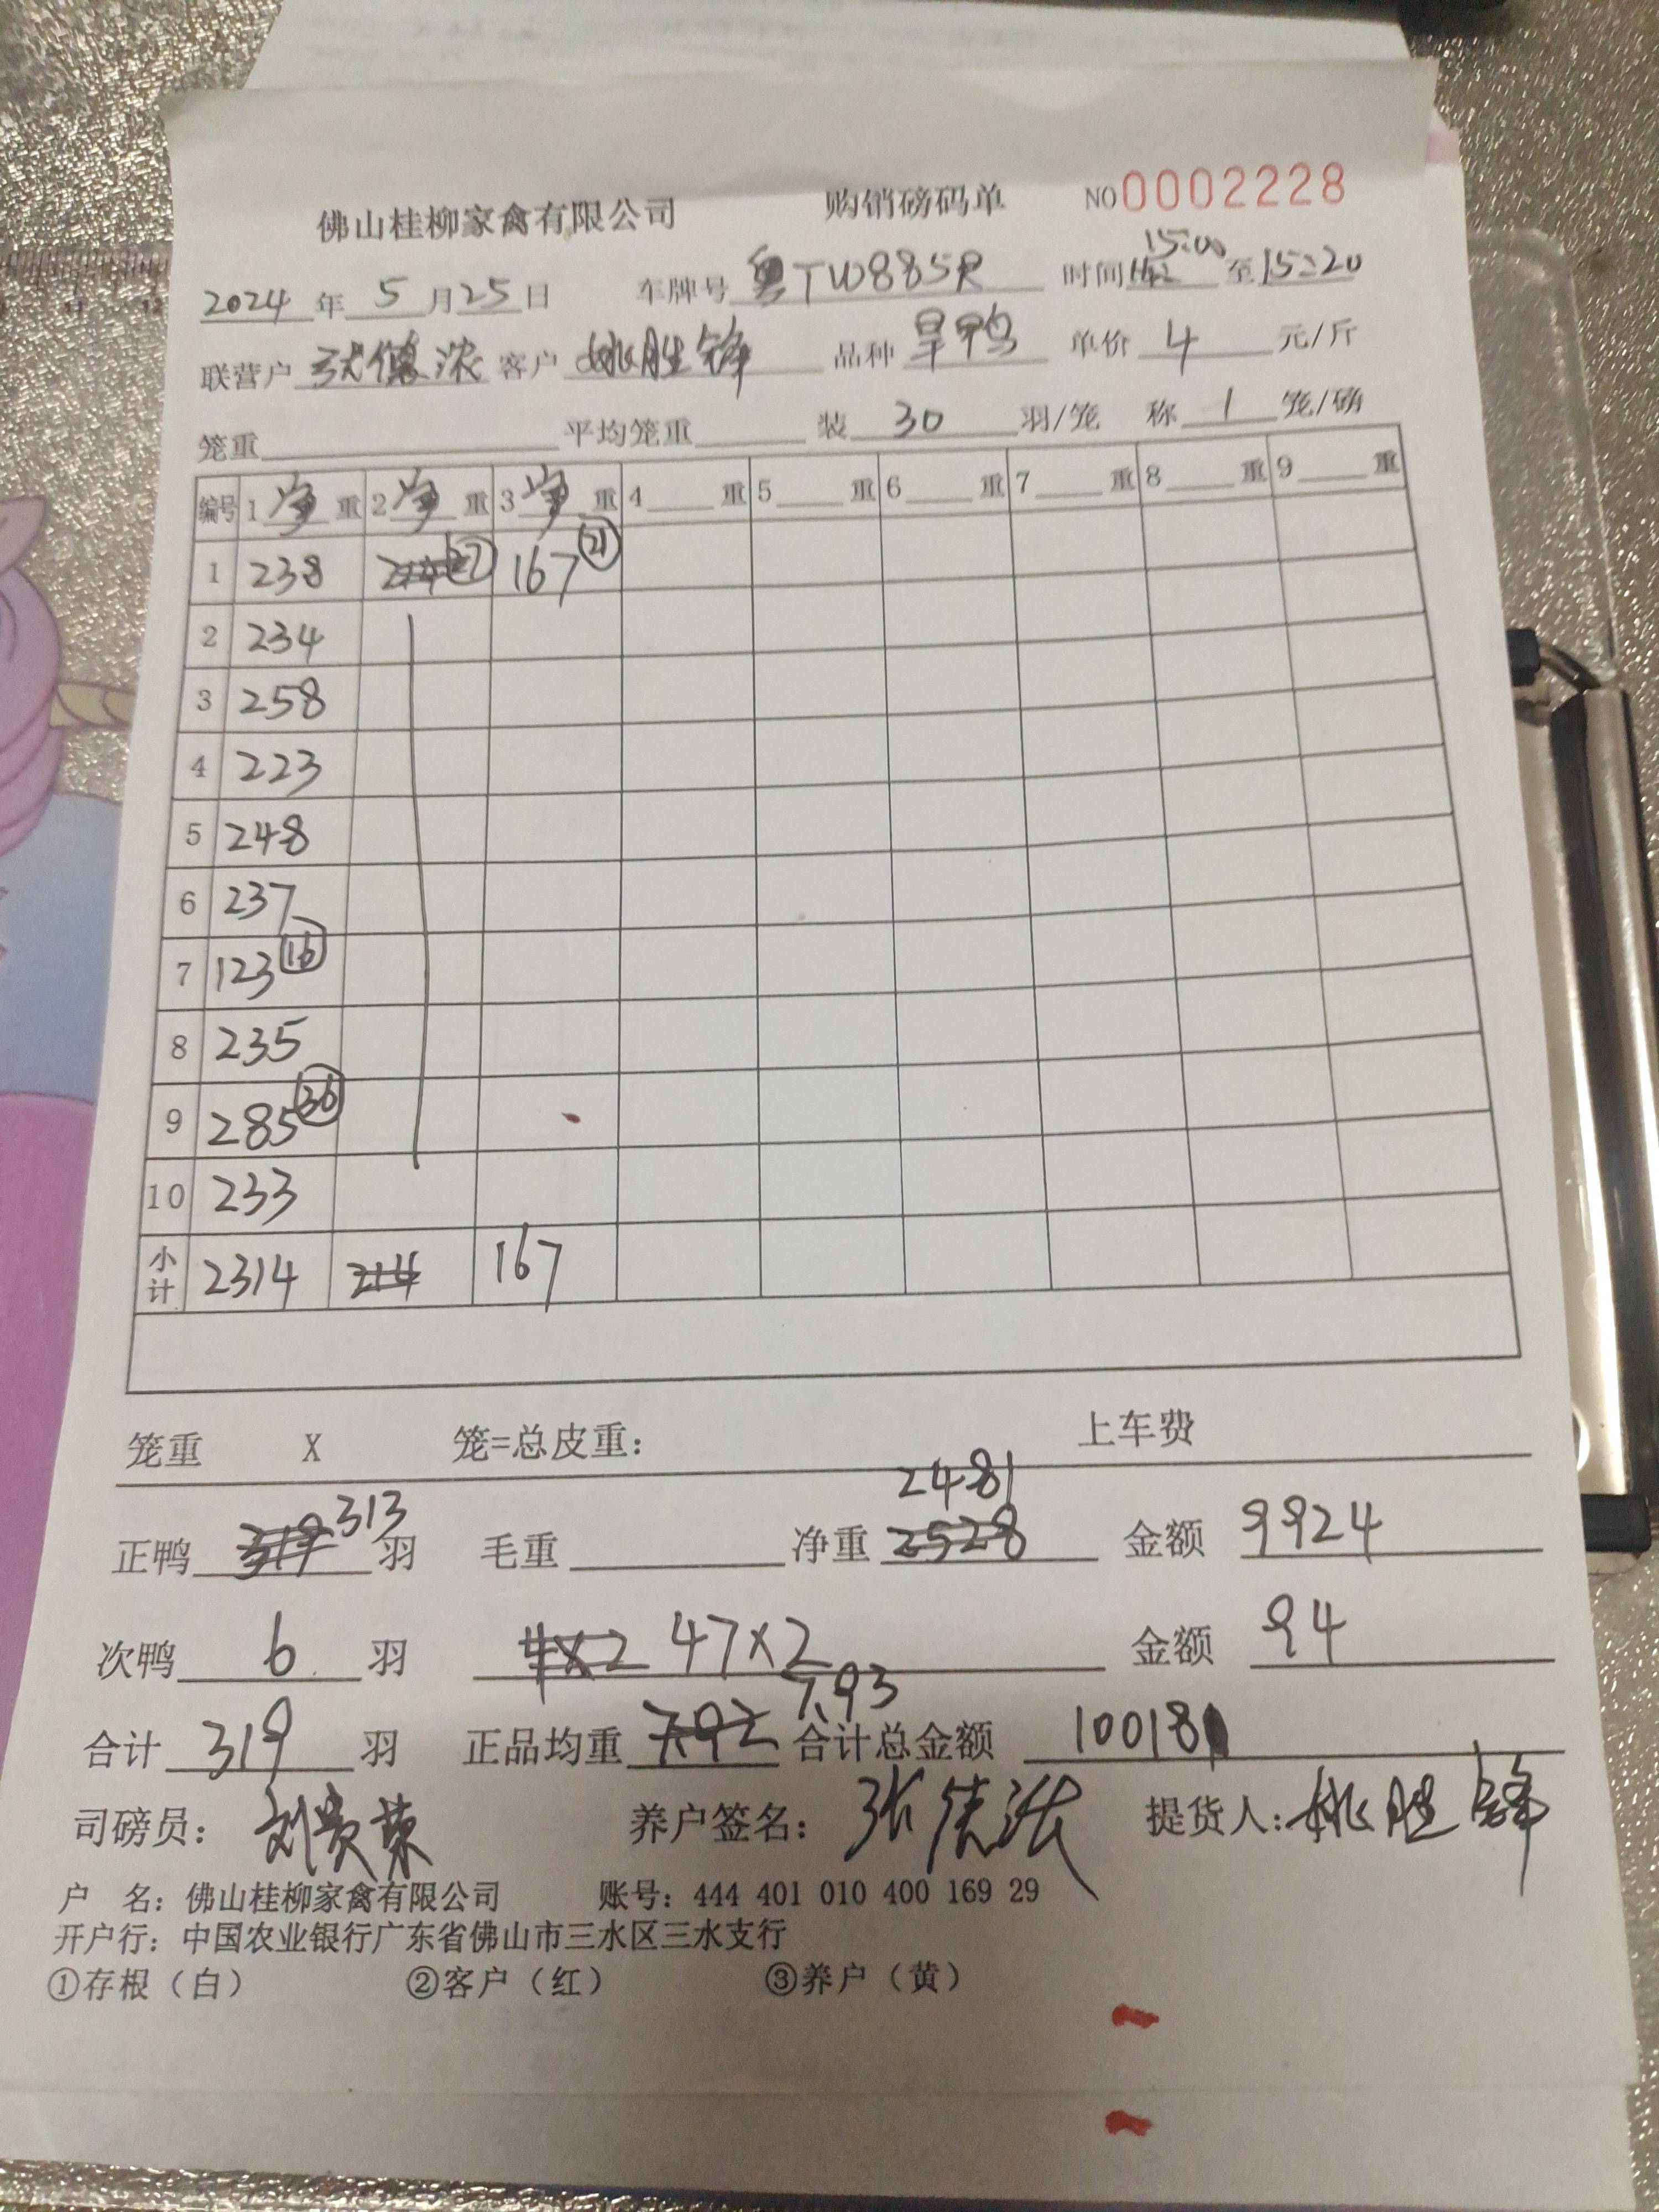 佛山桂柳家禽有限公司 购销磅码单 NO 0002228
2024 年 5 月 25 日 车牌号 粤TW885R 时间 15:00 至 15:20
联营户 张德浓 客户 姚胜锋 品种 旱鸭 单价 4 元/斤
笼重 平均笼重 装 30 羽/笼 称 1 笼/磅
编号 1 净 重 2 净 重 3 净 重 4 重 5 重 6 重 7 重 8 重 9 重
1 238 214 27 167 21
2 234
3 258
4 223
5 248
6 237
7 123 16
8 235
9 285 36
10 233
小计 2314 214 167
笼重 X 笼=总皮重: 上车费
正鸭 319 313 羽 毛重 净重 2528 2481 金额 9924
次鸭 6 羽 4x2 47x2 金额 94
合计 319 羽 正品均重 7.92 7.93 合计总金额 10018
司磅员: 刘贵荣 养户签名: 张德浓 提货人: 姚胜锋
户 名: 佛山桂柳家禽有限公司 账号: 444 401 010 400 169 29
开户行: 中国农业银行广东省佛山市三水区三水支行
①存根（白） ②客户（红） ③养户（黄）